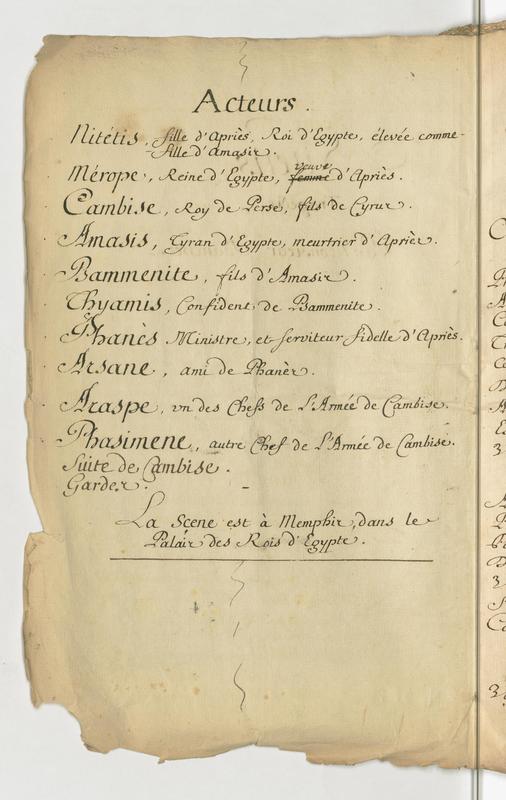 Acteurs.
Nitétis, fille d'Apriès, Roi d'Egypte, élevée comme
fille d'Amasis.
Mérope, Reine d'Egypte, femme veuve d'Apriès.
Cambise, Roy de Perse, fils de Cyrus.
Amasis, Tyran d'Egypte, meurtrier d'Apriès.
Bammenite, fils d'Amasis.
Thyamis, Confident de Bammenite.
Phanès Ministre, et serviteur fidelle d'Apriès.
Arsane, ami de Phanès.
Araspe, vn des Chefs de L'Armée de Cambise.
Phasimene, autre Chef de L'Armée de Cambise.
Suite de Cambise.
Gardes.
La Scene est à Memphis, dans le
Palais des Rois d'Egypte.